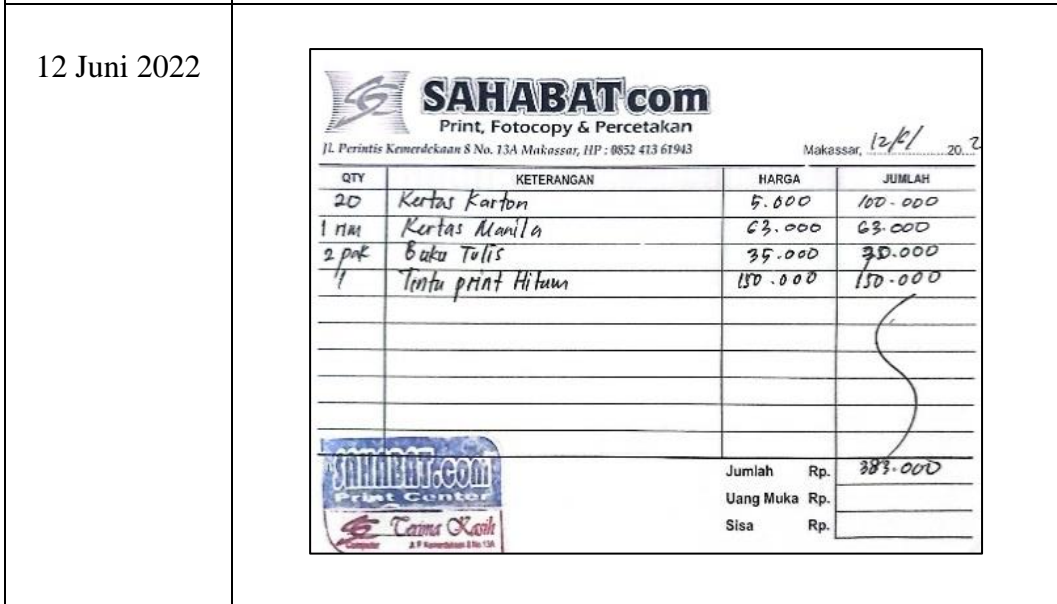 12 Juni 2022
SAHABAT com
Print, Fotocopy & Percetakan
Jl. Perintis Kemerdekaan 8 No. 13A Makassar, HP : 0852 413 61943
Makassar, 12/6/ 20. 2
QTY KETERANGAN HARGA JUMLAH
20 Kertas Karton 5.000 100.000
1 rim Kertas Manila 63.000 63.000
2 pak Buku Tulis 35.000 70.000
1 Tinta print Hitam 150.000 150.000
Jumlah Rp. 383.000
Uang Muka Rp.
Sisa Rp.
SAHABAT.com
Print Center
Terima Kasih
Computer